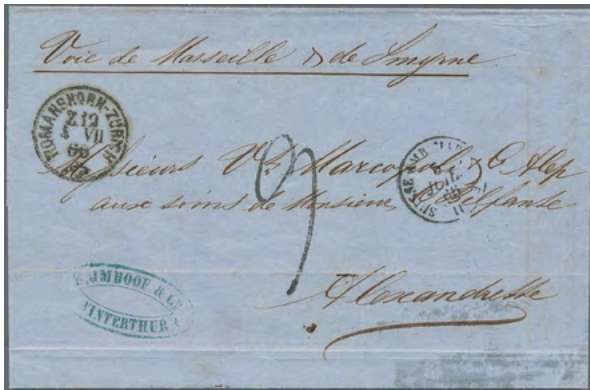 Voie de Marseille & de Smyrne
ROMANSHORN-ZÜRICH
Z12
VII
66
Messieurs Vt. Marcopoli & C Alep
aux soins de Monsieur Belfante
9
SUISSE AMB. MARS
6
JUIL.
66
Alexandrette
IMHOOF &
WINTERTHUR